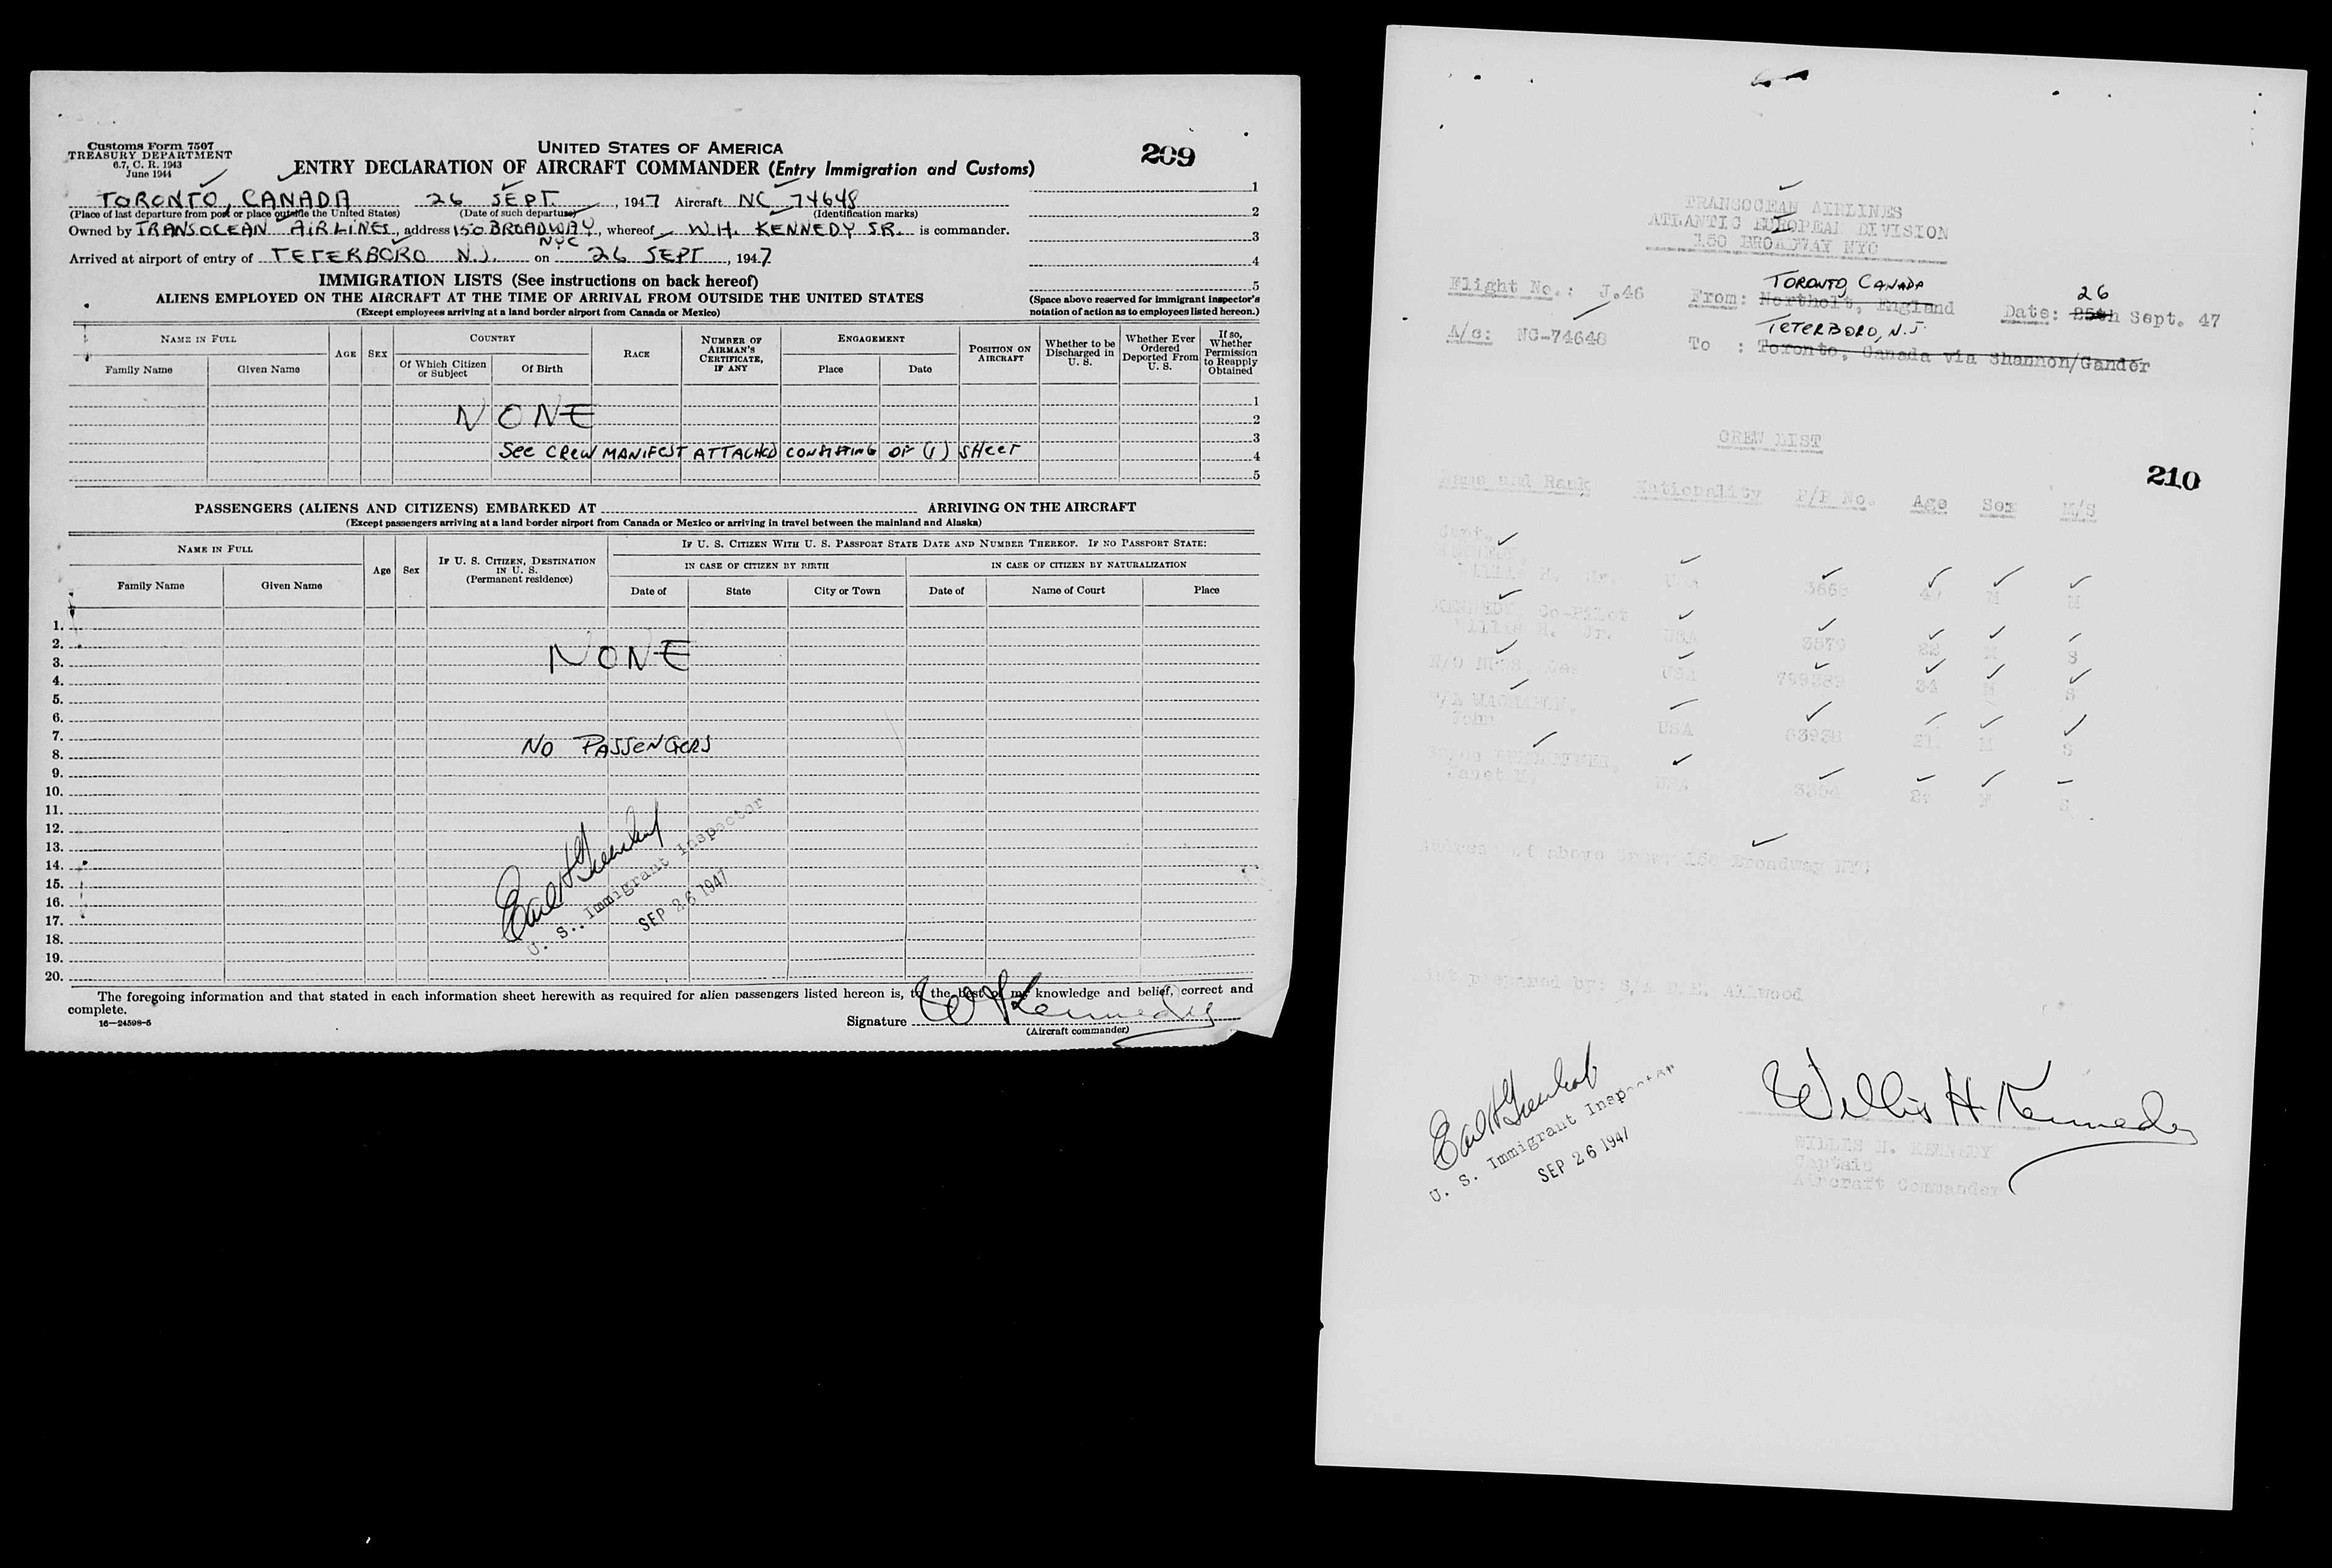 Customs Form 7507
TREASURY DEPARTMENT
6.7, C. R. 1943
June 1944
UNITED STATES OF AMERICA
ENTRY DECLARATION OF AIRCRAFT COMMANDER (Entry Immigration and Customs)
209
TORONTO, CANADA 26 SEPT. , 1947 Aircraft NC 74648
(Place of last departure from port or place outside the United States) (Date of such departure) (Identification marks)
Owned by TRANSOCEAN AIRLINES, address 150 BROADWAY, whereof W.H. KENNEDY SR. is commander.
NYC
Arrived at airport of entry of TETERBORO N.J. on 26 SEPT , 1947
1
2
3
4
5
(Space above reserved for immigrant inspector's
notation of action as to employees listed hereon.)
IMMIGRATION LISTS (See instructions on back hereof)
ALIENS EMPLOYED ON THE AIRCRAFT AT THE TIME OF ARRIVAL FROM OUTSIDE THE UNITED STATES
(Except employees arriving at a land border airport from Canada or Mexico)
NAME IN FULL
Family Name Given Name
AGE SEX
COUNTRY
Of Which Citizen or Subject Of Birth
RACE
NUMBER OF AIRMAN'S CERTIFICATE, IF ANY
ENGAGEMENT
Place Date
POSITION ON AIRCRAFT
Whether to be Discharged in U. S.
Whether Ever Ordered Deported From U. S.
If so, Whether Permission to Reapply Obtained
1
NONE 2
3
See CREW MANIFEST ATTACHED CONSISTING OF (1) SHEET 4
5
PASSENGERS (ALIENS AND CITIZENS) EMBARKED AT ARRIVING ON THE AIRCRAFT
(Except passengers arriving at a land border airport from Canada or Mexico or arriving in travel between the mainland and Alaska)
NAME IN FULL
Family Name Given Name
Age Sex
IF U. S. CITIZEN, DESTINATION IN U. S.
(Permanent residence)
IF U. S. CITIZEN WITH U. S. PASSPORT STATE DATE AND NUMBER THEREOF. IF NO PASSPORT STATE:
IN CASE OF CITIZEN BY BIRTH IN CASE OF CITIZEN BY NATURALIZATION
Date of State City or Town Date of Name of Court Place
1.
2.
NONE
3.
4.
5.
6.
7.
NO PASSENGERS
8.
9.
10.
11.
12.
13.
14.
15.
16.
17.
18.
19.
20.
U. S. Immigrant Inspector
SEP 26 1947
The foregoing information and that stated in each information sheet herewith as required for alien passengers listed hereon is, to the best of my knowledge and belief, correct and
complete.
16—24598-5
Signature W H Kennedy
(Aircraft commander)
TRANSOCEAN AIRLINES
ATLANTIC EUROPEAN DIVISION
150 BROADWAY NYC
TORONTO, CANADA 26
Flight No.: J.46 From: Northolt, England Date: 25th Sept. 47
TETERBORO, N.J.
A/c: NC-74648 To : Toronto, Canada via Shannon/Gander
CREW LIST
210
Name and Rank Nationality P/P No. Age Sex M/S
Capt.
KENNEDY,
Willis H. Sr. USA 3668 M M
KENNEDY, Co-Pilot
Willis H. Jr. USA 3570 22 M S
USA 34 M S
John USA 21 M S
Janet M. USA F S
Address of above crew, 150 Broadway NYC
List prepared by: Allwood
U. S. Immigrant Inspector
SEP 26 1947
Willis H Kennedy
WILLIS H. KENNEDY
Captain
Aircraft Commander